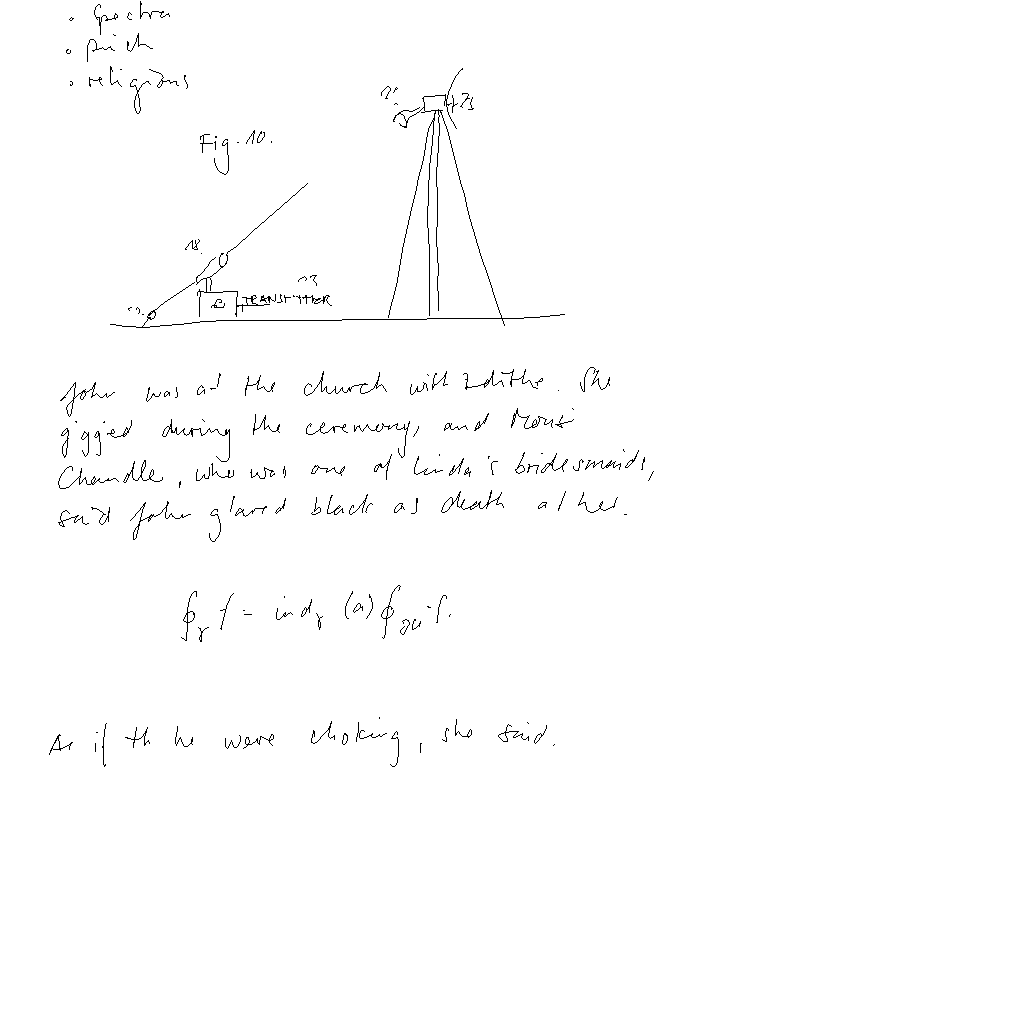 • Spectra
• pinch
• religions
Fig. 10.
18.
TRANSMITTER
John was at the church with Edithe. She
giggled during the ceremony, and Mousi
Chandle, who was one of Linda's bridesmaids,
said John glared black as death at her.
∮γ f = indγ (a) ∮∂u f.
As if th he were choking, she said.